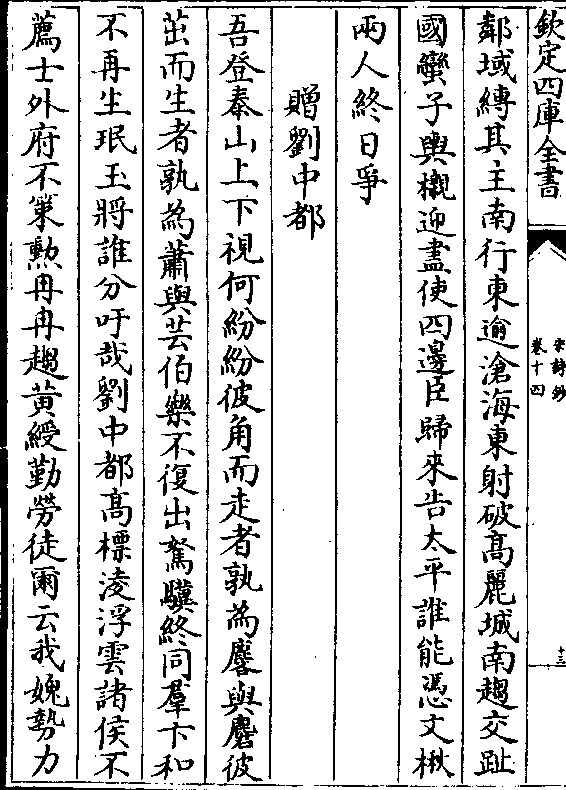 欽定四庫全書
宋詩鈔
卷十四
十三
鄰域縛其主南行東逾滄海東射破高麗城南趨交趾
國蠻子輿櫬迎盡使四邊臣歸來告太平誰能憑文楸
兩人終日爭
贈劉中都
吾登泰山上下視何紛紛彼角而走者孰為麏與麕彼
茁而生者孰為蕭與芸伯樂不復出駑驥終同羣卞和
不再生珉玉將誰分吁哉劉中都高標淩浮雲諸侯不
薦士外府不策勲冉冉趨黃綬勤勞徒爾云我媿勢力